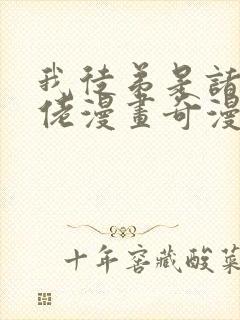 我徒弟是諸
佬漫畫奇漫
十年窖藏酸菜